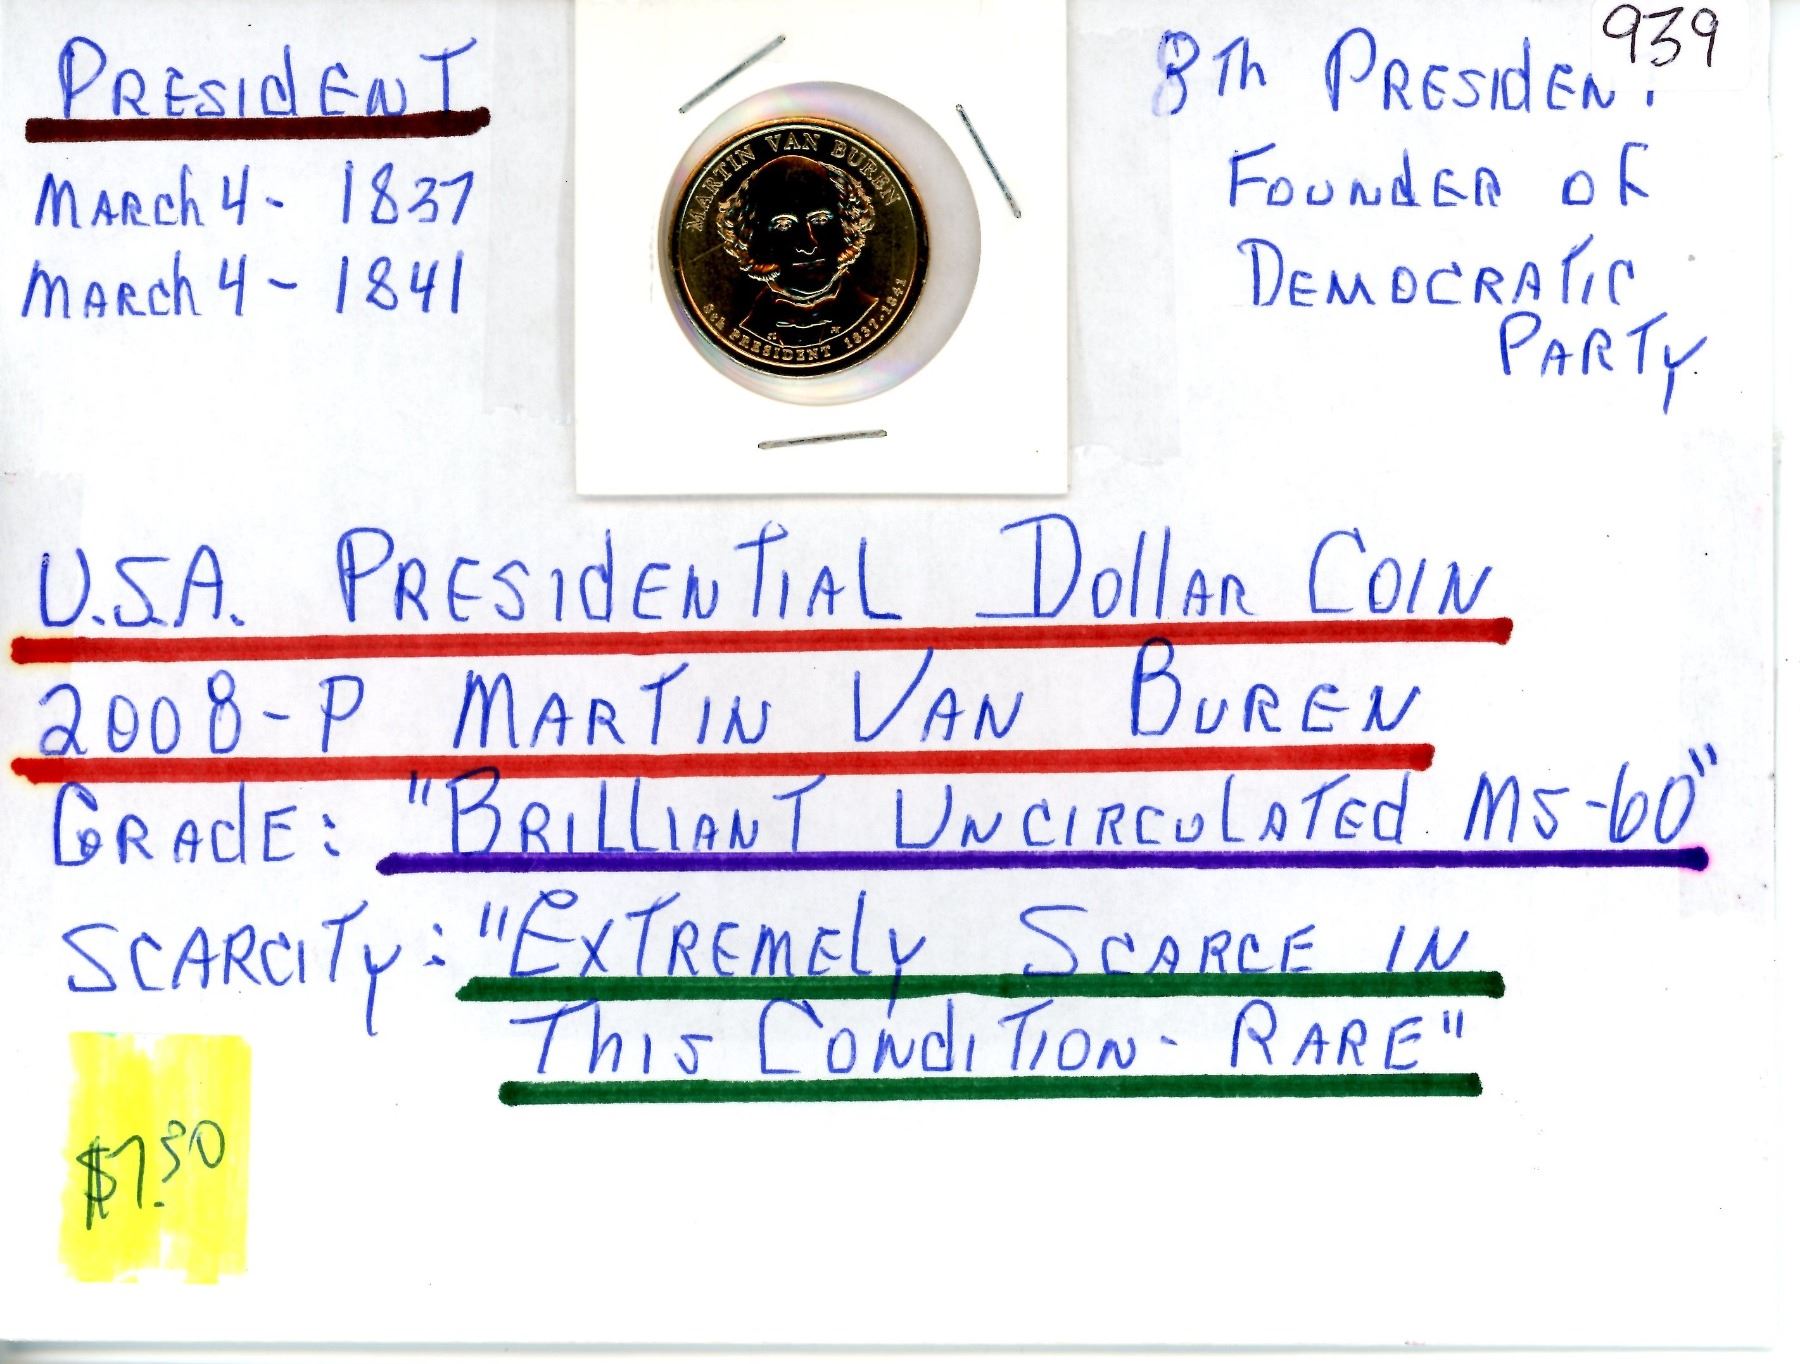 939
PRESIDENT
MARCH 4 - 1837
MARCH 4 - 1841
MARTIN VAN BUREN
8th PRESIDENT 1837-1841
8TH PRESIDENT
FOUNDER OF
DEMOCRATIC
PARTY
U.S.A. PRESIDENTIAL DOLLAR COIN
2008-P MARTIN VAN BUREN
GRADE: "BRILLIANT UNCIRCULATED MS-60"
SCARCITY: "EXTREMELY SCARCE IN
THIS CONDITION - RARE"
$7.50